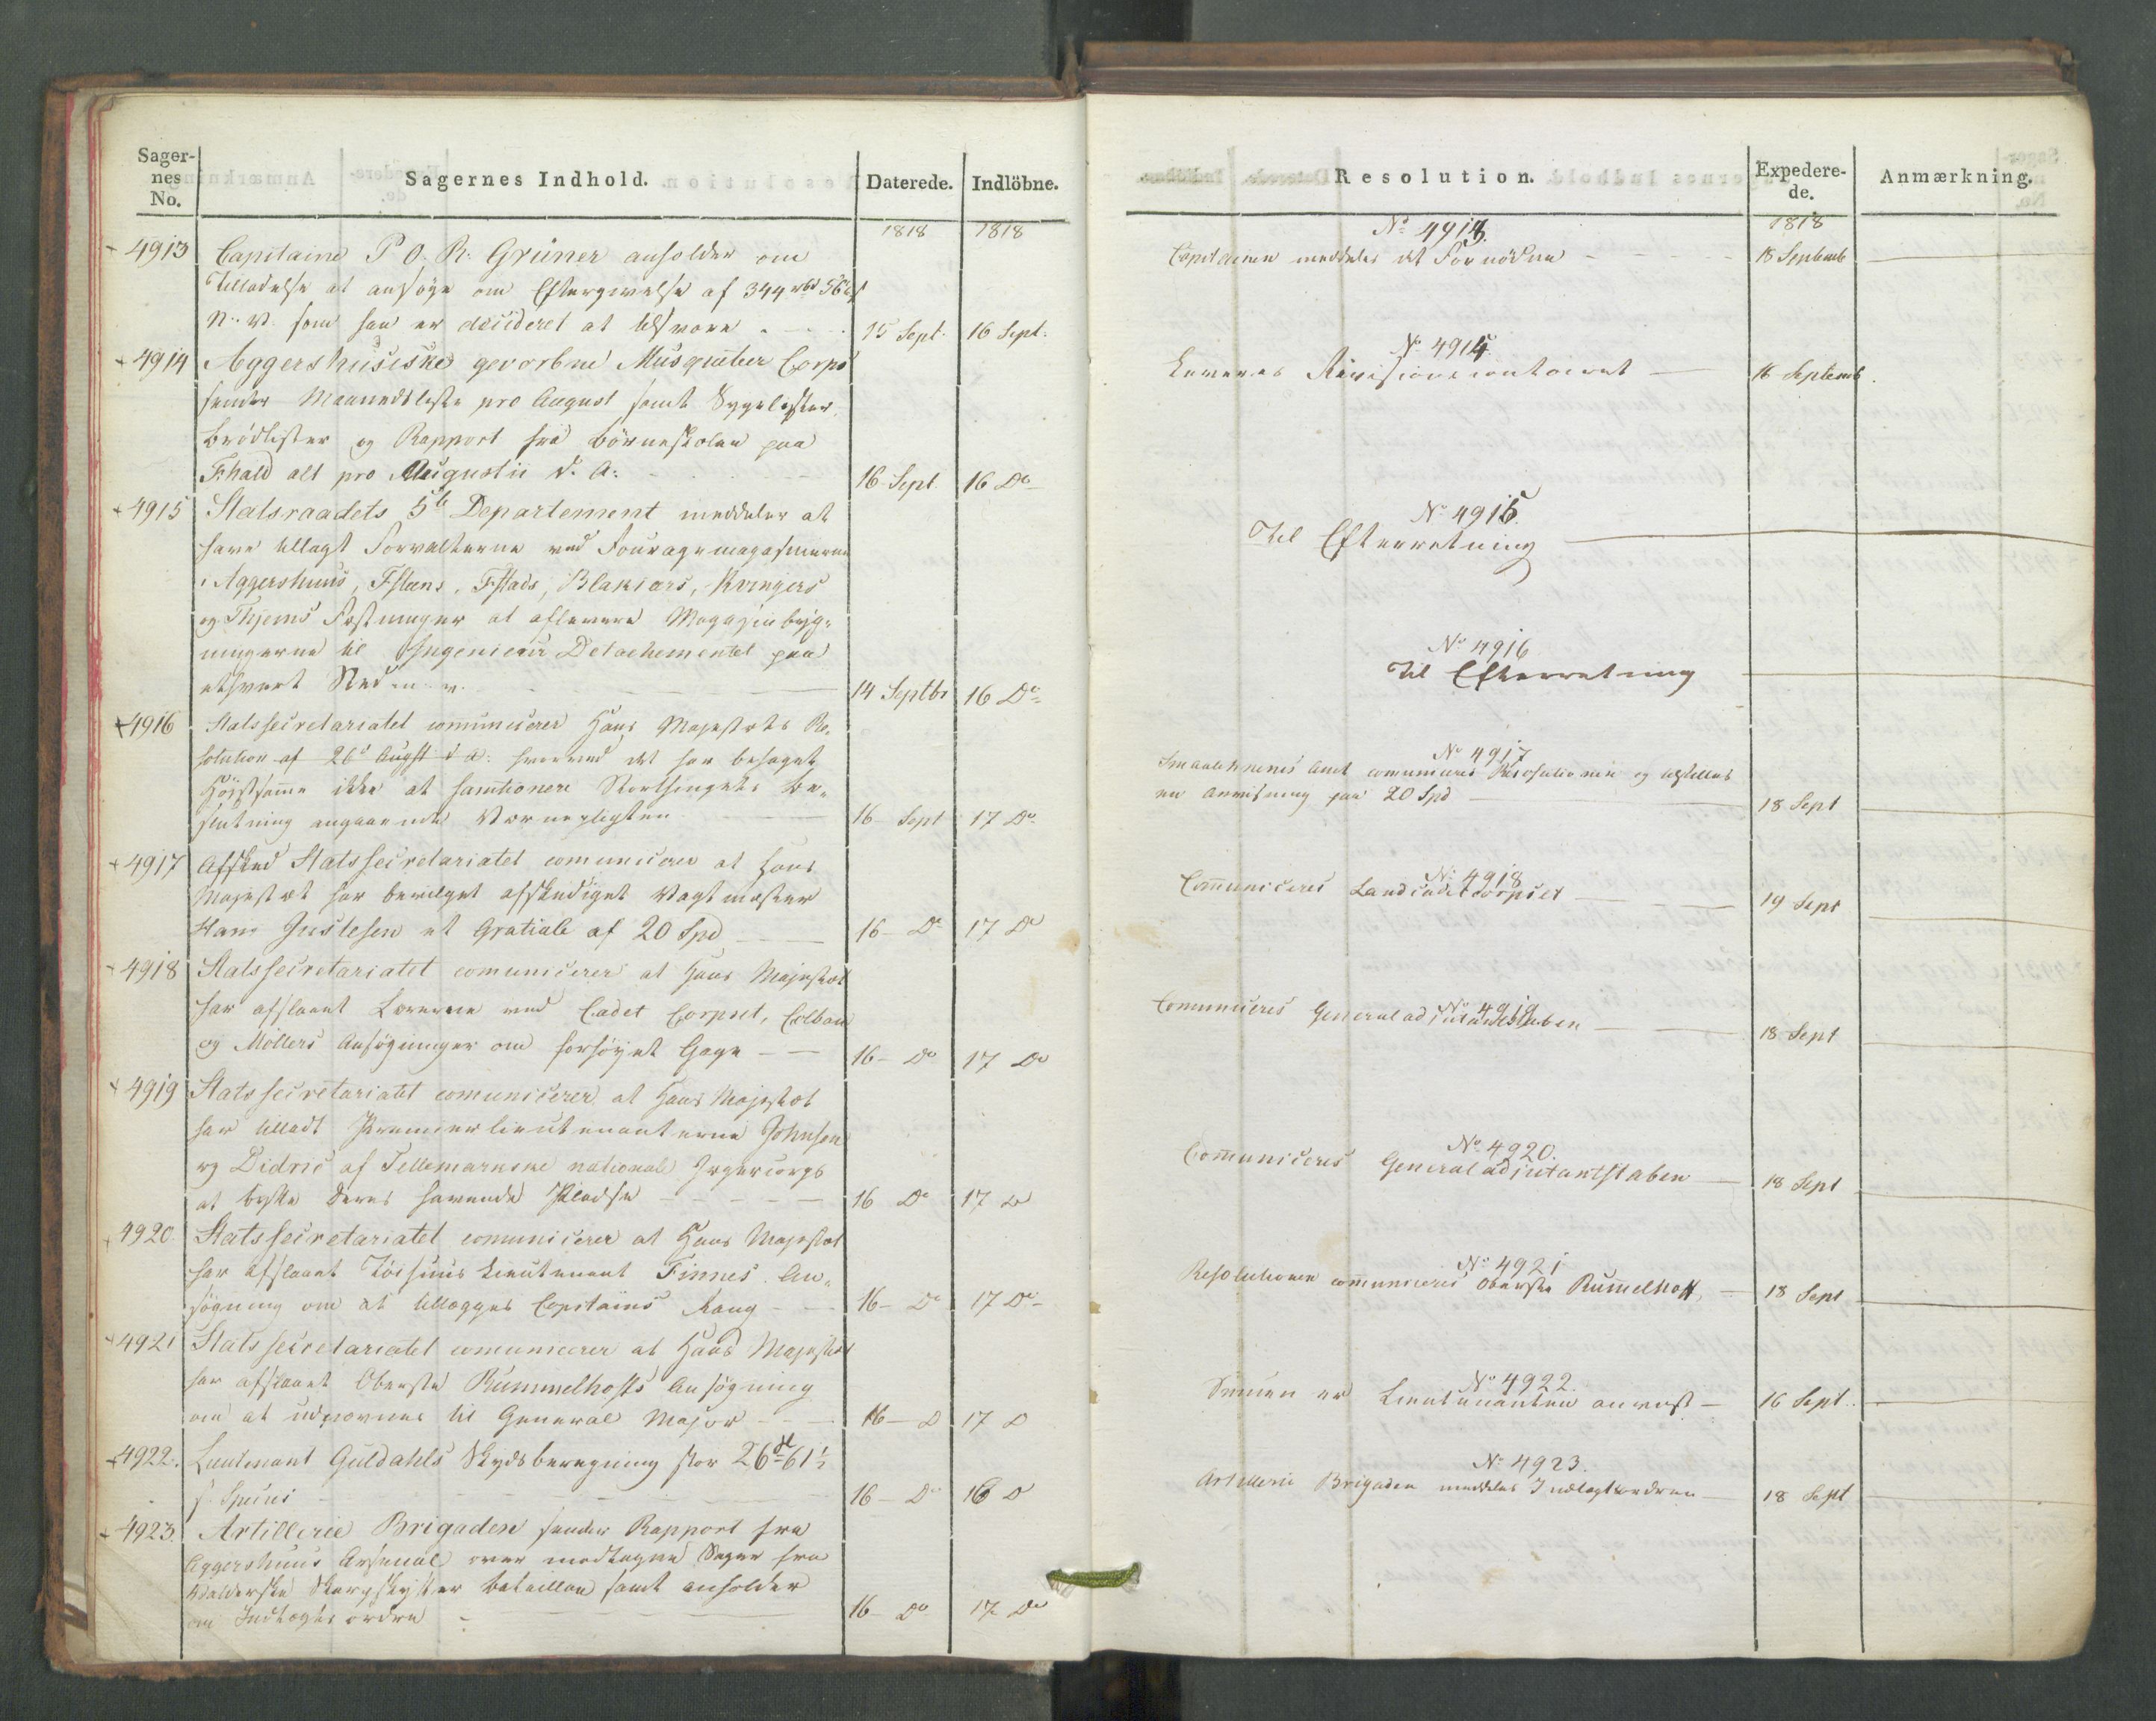 Sager-
nes
No.
Sagernes Indhold.
Daterede.
Indlöbne.
1818
1818
4913 Capitaine P. O. R. Grüner anholder om
Tilladelse at ansöge om Eftergivelse af 344
N. V. som han er decideret at tilsvare
15 Sept. 16 Sept.
4914 Aggershusiske gevorbne Musqueteer Corps
sender Maanedsliste pro August samt Sygelister
Brödlister og Rapport fra Börneskolen paa
Fhald alt pro Augustii d. A.
16 Sept. 16 Do
4915 Statsraadets 5te Departement meddeler at
have tillagt Forvalterne ved Fouragemagasinerne
i Aggershuus, Fsteens, Fstads, Blakiærs, Kvingers
og Thjems Fæstninger at aflevere Magazinbyg-
ningerne til Ingenieur Detachementet paa
ethvert Sted m. v.
14 Septbr 16 Do
4916 Statssecretariatet comunicerer Hans Majestæts Re-
solution af 26d Augst d. A. hvorved det har behaget
Höistsamme ikke at sanctionere Storthingets Be-
slutning angaaende Værnepligten
16 Sept 17 Do
4917 Afsked Statssecretariatet comunicerer at Hans
Majestæt har bevilget afskediget Vagtmester
Hans Justesen et Gratiale af 20 Spd
16 Do 17 Do
4918 Statssecretariatet comunicerer at Hans Majestæt
har afslaaet Lærerne ved Cadet Corpset, Colban
og Möllers Ansögninger om forhöyet Gage
16 Do 17 Do
4919 Statssecretariatet comunicerer at Hans Majestæt
har tilladt Premierlieutenanterne Johnsen
og Didric af Tellemarkske nationale Jægercorps
at bytte deres havende Pladse
16 Do 17 Do
4920. Statssecretariatet comunicerer at Hans Majestæt
har afslaaet Töihuus Lieutenant Finnes An-
sögning om at tillægges Capitains Rang
16 Do 17 Do
4921 Statssecretariatet comunicerer at Hans Majestæt
har afslaaet Oberste Rummelhoffs Ansögning
om at udnævnes til General Major
16 D 17 D
4922. Lieutenant Guldahls Skydsberegning stor 26 61½
s Species
16 Do 16 D
4923. Artillerie Brigaden sender Rapport fra
Aggershuus Arsenal over modtagne Sager fra
Skarpskytter Bataillon samt anholder
om Indtægtsordre
16 Do 17 Do
Resolution.
Expedere-
de.
Anmærkning.
1818
No 4913.
Capitainen meddeles det Fornödne 18 Septemb
No 4914.
Leveres Revisionscontoiret 16 Septemb.
No 4915.
Til Efterretning
No 4916
Til Efterretning
No 4917
Smaalehnenes Amt comuniceres Resolutionen og tilstilles
en Anvisning paa 20 Spd 18 Sept
No 4918
Communiceres Landcadetcorpset 19 Sept
No 4919
Comuniceres Generaladjutantstaben 18 Sept
No 4920.
Communiceres Generaladjutantstaben 18 Sept
No 4921
Resolutionen communiceres Oberste Rummelhoff, 18 Sept
No 4922.
er Lieutenanten anvist 16 Sept.
No 4923.
Artillerie Brigaden meddeles Indtægtsordren 18 Sept